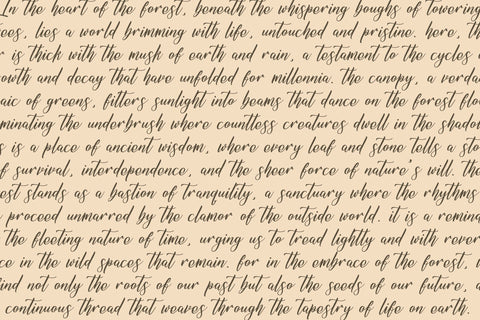 In the heart of the forest, beneath the whispering boughs of towering
ees, lies a world brimming with life, untouched and pristine. here, th
r is thick with the musk of earth and rain, a testament to the cycles o
owth and decay that have unfolded for millennia. the canopy, a verda
aic of greens, filters sunlight into beams that dance on the forest floo
minating the underbrush where countless creatures dwell in the shadow
s is a place of ancient wisdom, where every leaf and stone tells a sto
f survival, interdependence, and the sheer force of nature's will. the
est stands as a bastion of tranquility, a sanctuary where the rhythms
proceed unmarred by the clamor of the outside world. it is a remind
the fleeting nature of time, urging us to tread lightly and with rever
ce in the wild spaces that remain. for in the embrace of the forest, w
ind not only the roots of our past but also the seeds of our future, a
continuous thread that weaves through the tapestry of life on earth.